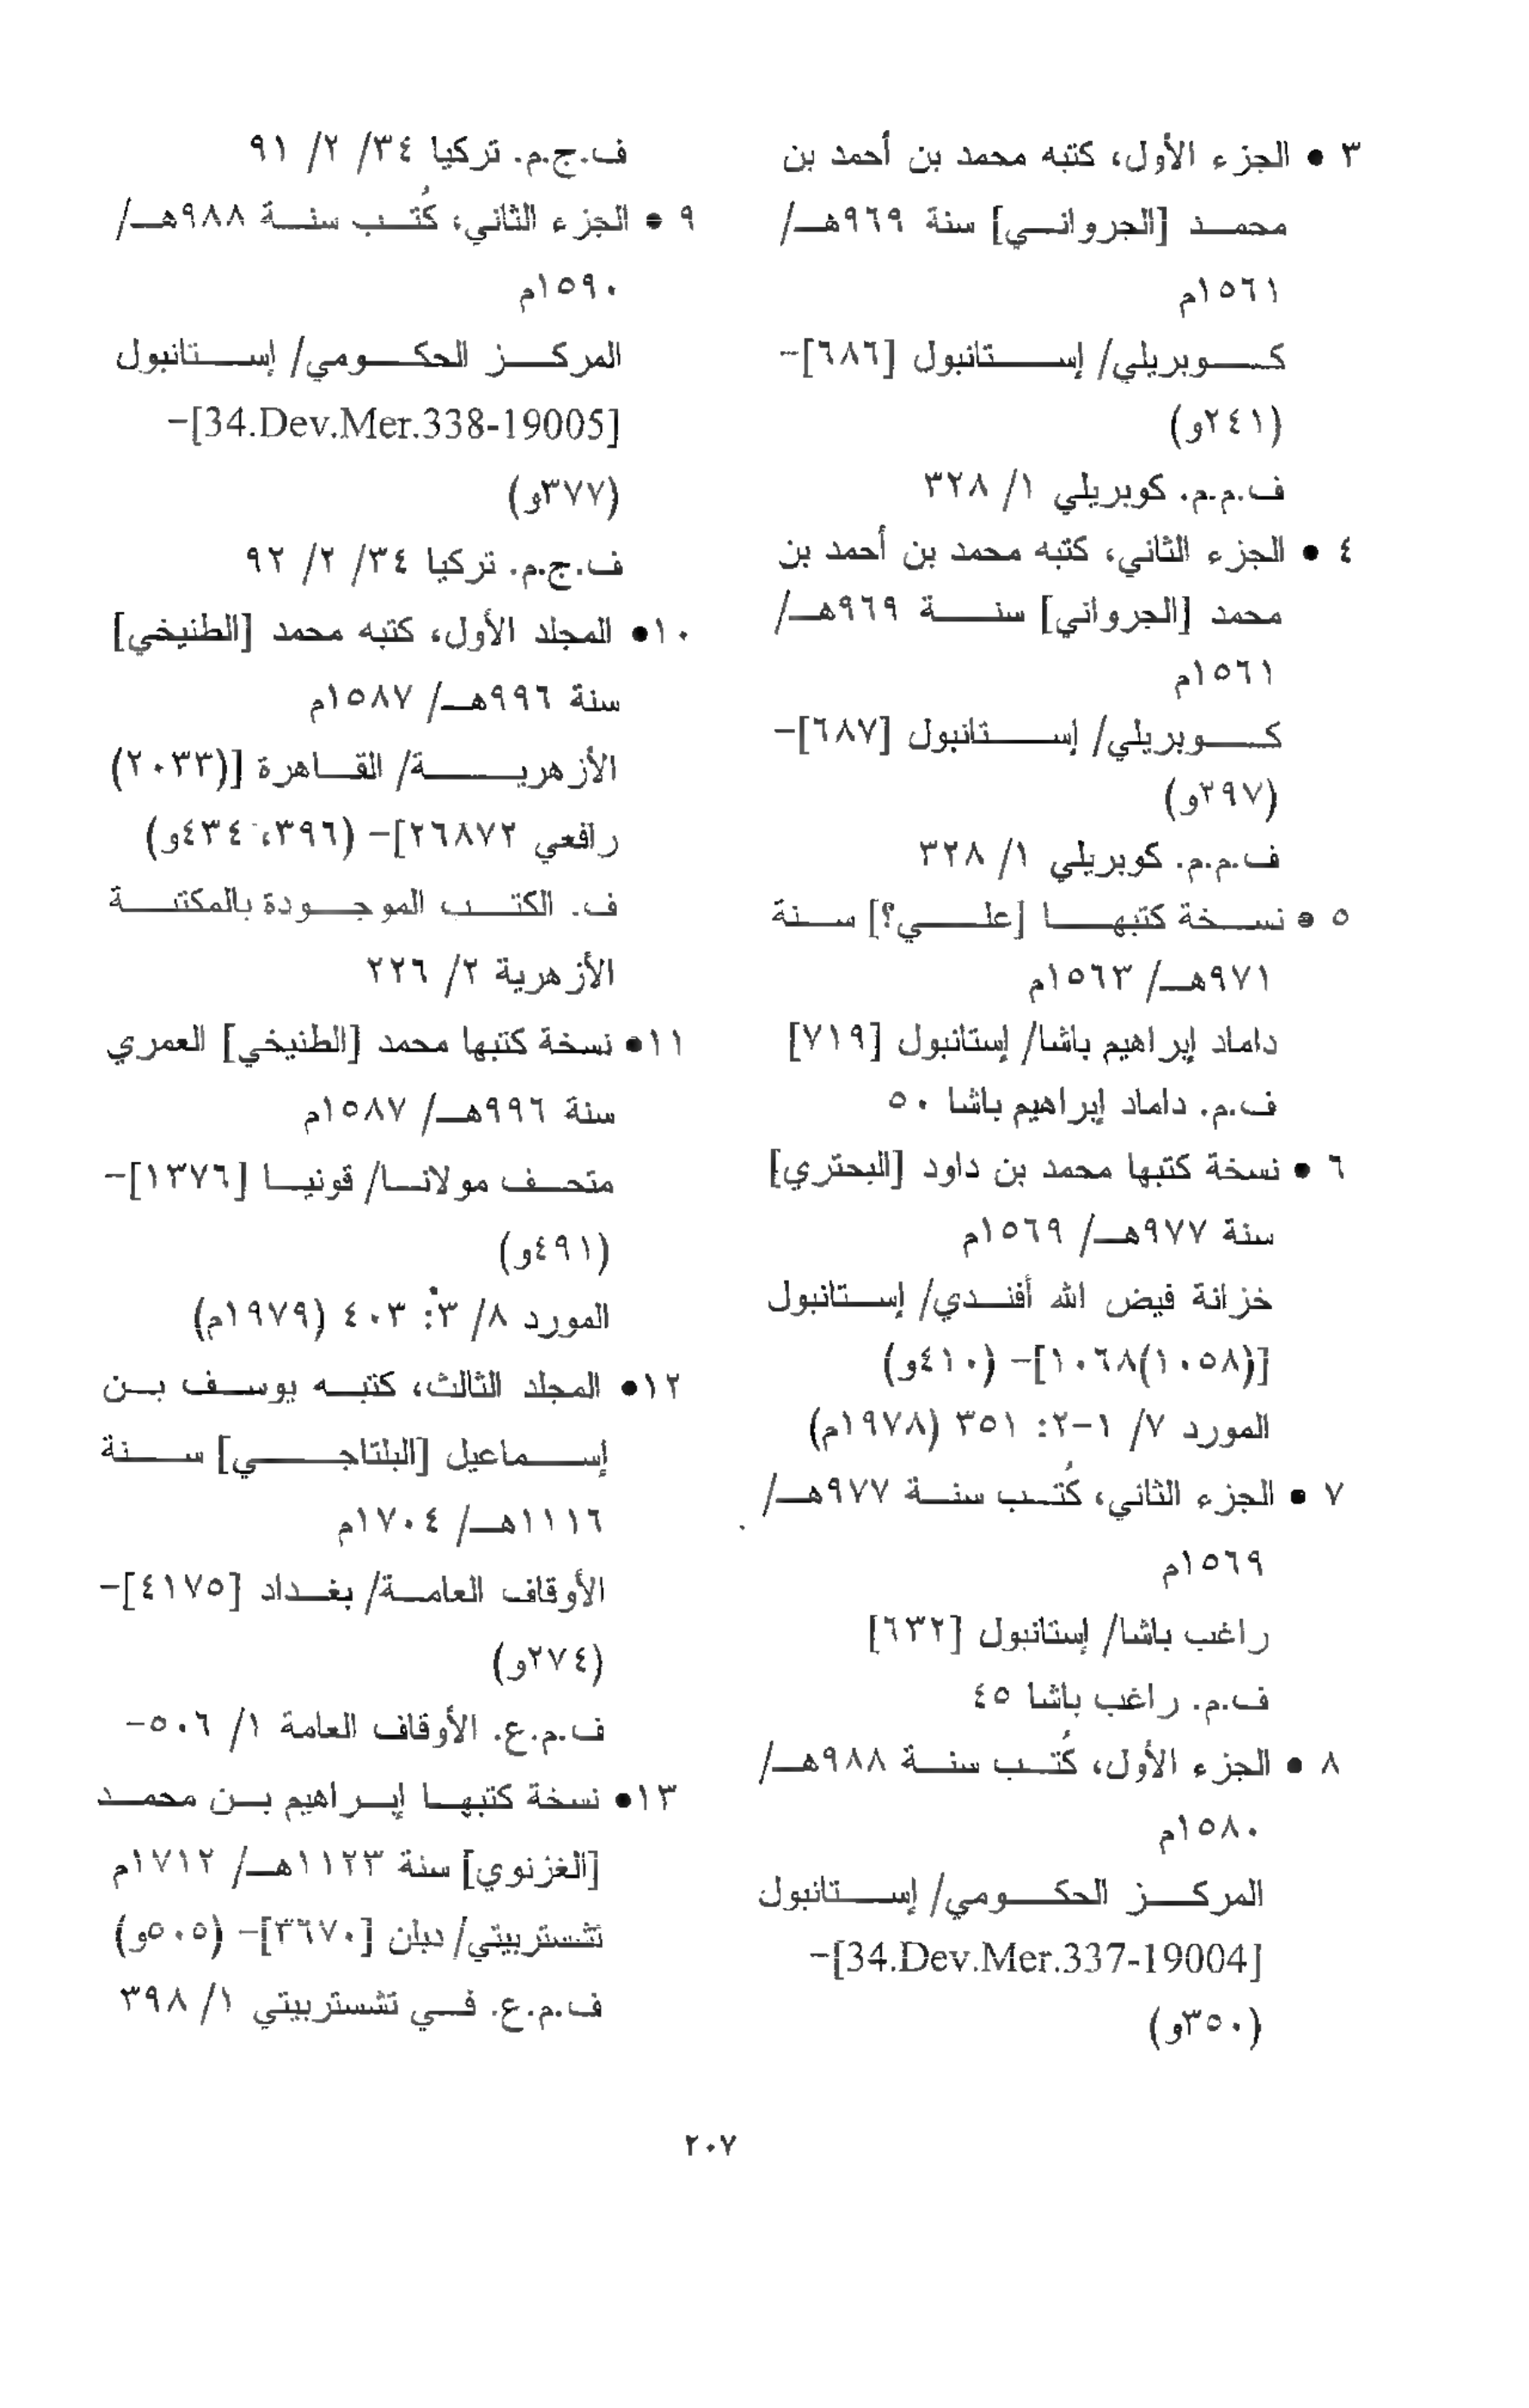 ٣ • الجزء الأول، كتبه محمد بن أحمد بن
محمد [الجرواني] سنة ٩٦٩هـ/
١٥٦١م
كوبريلي/ إستانبول [٦٨٦]-
(٢٤١و)
ف.م.م. كوبريلي ١/ ٣٢٨
٤ • الجزء الثاني، كتبه محمد بن أحمد بن
محمد [الجرواني] سنة ٩٦٩هـ/
١٥٦١م
كوبريلي/ إستانبول [٦٨٧]-
(٢٩٧و)
ف.م.م. كوبريلي ١/ ٣٢٨
٥ • نسخة كتبها [علي؟] سنة
٩٧١هـ/ ١٥٦٣م
داماد إبراهيم باشا/ إستانبول [٧١٩]
ف.م. داماد إبراهيم باشا ٥٠
٦ • نسخة كتبها محمد بن داود [البحتري]
سنة ٩٧٧هـ/ ١٥٦٩م
خزانة فيض الله أفندي/ إستانبول
[(١٠٥٨)١٠٦٨]- (٤١٠و)
المورد ٧/ ١-٢: ٣٥١ (١٩٧٨م)
٧ • الجزء الثاني، كُتب سنة ٩٧٧هـ/
١٥٦٩م
راغب باشا/ إستانبول [٦٣٢]
ف.م. راغب باشا ٤٥
٨ • الجزء الأول، كُتب سنة ٩٨٨هـ/
١٥٨٠م
المركز الحكومي/ إستانبول
[34.Dev.Mer.337-19004]-
(٣٥٠و)
ف.ج.م. تركيا ٣٤/ ٢/ ٩١
٩ • الجزء الثاني، كُتب سنة ٩٨٨هـ/
١٥٩٠م
المركز الحكومي/ إستانبول
[34.Dev.Mer.338-19005]-
(٣٧٧و)
ف.ج.م. تركيا ٣٤/ ٢/ ٩٢
١٠• المجلد الأول، كتبه محمد [الطنيخي]
سنة ٩٩٦هـ/ ١٥٨٧م
الأزهرية/ القاهرة [(٢٠٣٣)
رافعي ٢٦٨٧٢]- (٣٩٦، ٤٣٤و)
ف. الكتب الموجودة بالمكتبة
الأزهرية ٢/ ٢٢٦
١١• نسخة كتبها محمد [الطنيخي] العمري
سنة ٩٩٦هـ/ ١٥٨٧م
متحف مولانا/ قونيا [١٣٧٦]-
(٤٩١و)
المورد ٨/ ٣: ٤٠٣ (١٩٧٩م)
١٢• المجلد الثالث، كتبه يوسف بن
إسماعيل [البلتاجي] سنة
١١١٦هـ/ ١٧٠٤م
الأوقاف العامة/ بغداد [٤١٧٥]-
(٢٧٤و)
ف.م.ع. الأوقاف العامة ١/ ٥٠٦-
١٣• نسخة كتبها إبراهيم بن محمد
[الغزنوي] سنة ١١٢٣هـ/ ١٧١٢م
تشستربيتي/ دبلن [٣٦٧٠]- (٥٠٥و)
ف.م.ع. في تشستربيتي ١/ ٣٩٨
٢٠٧